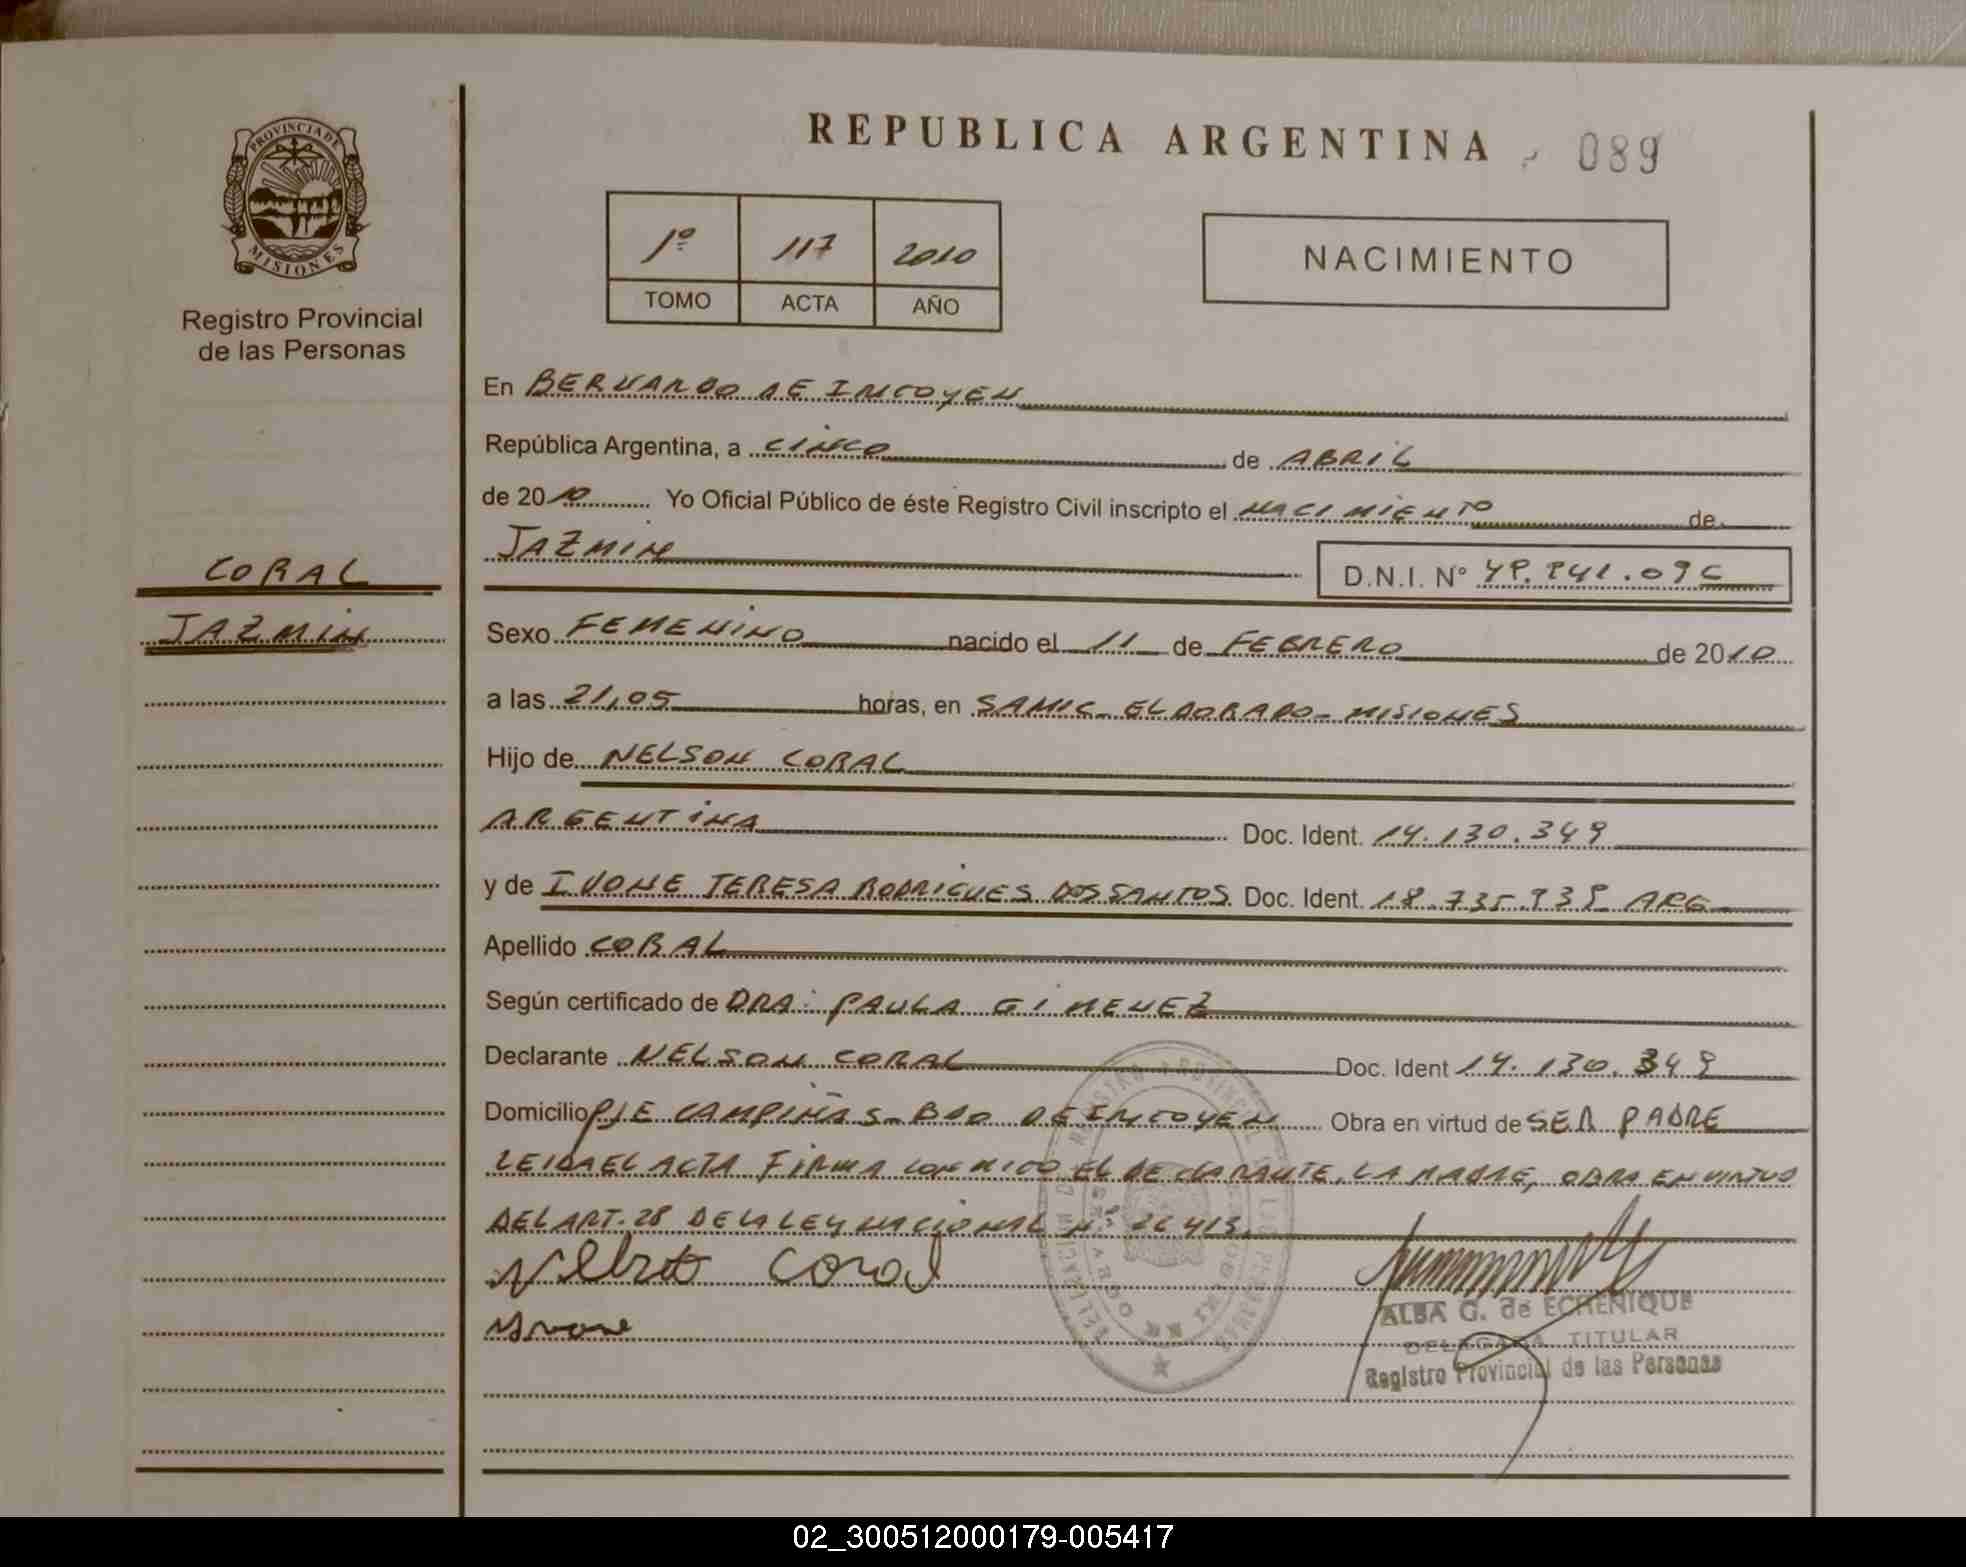 PROVINCIA DE
MISIONES
Registro Provincial
de las Personas
CORAL
JAZMIN
REPUBLICA ARGENTINA 089
1º 117 2010
TOMO ACTA AÑO
NACIMIENTO
En BERNARDO DE IRIGOYEN
República Argentina, a CINCO de ABRIL
de 2010 Yo Oficial Público de éste Registro Civil inscripto el NACIMIENTO de
JAZMIN
D.N.I. Nº
Sexo FEMENINO nacido el 11 de FEBRERO de 2010
a las 21,05 horas, en SAMIC - ELDORADO - MISIONES
Hijo de NELSON CORAL
ARGENTINA Doc. Ident. 14.130.349
y de IVONE TERESA RODRIGUES DOS SANTOS Doc. Ident. ARG
Apellido CORAL
Según certificado de DRA: PAULA GIMENEZ
Declarante NELSON CORAL Doc. Ident 14.130.349
Domicilio PJE CAMPIÑAS - BDO DE IRIGOYEN Obra en virtud de SER PADRE
LEIDA EL ACTA FIRMA CONMIGO EL DECLARANTE, LA MADRE, OBRA EN VIRTUD
DEL ART. 28 DE LA LEY NACIONAL Nº 26413.
Coral
Ivone
ALBA G. de ECHENIQUE
DELEGADA TITULAR
Registro Provincial de las Personas
02_300512000179-005417